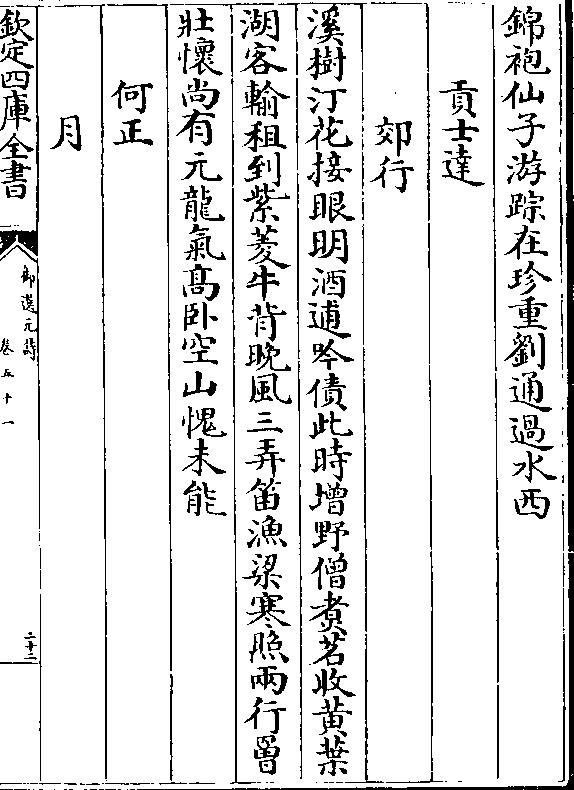 錦袍仙子游踪在珍重劉通過水西
貢士達
郊行
溪樹汀花接眼明酒逋吟債此時增野僧煑茗收黃葉
湖客輸租到紫菱牛背晚風三弄笛漁梁寒照兩行罾
壯懷尚有元龍氣髙卧空山愧未能
何正
月
欽定四庫全書
御選元詩
卷五十一
二十二